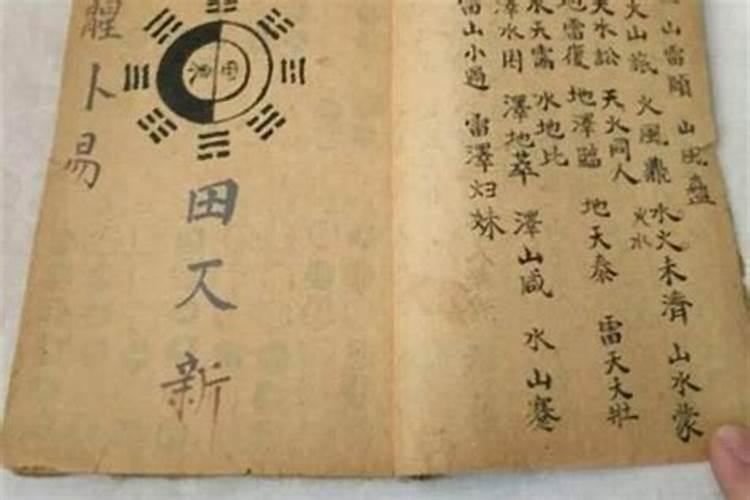 山雷頤
山風蠱
火山旅
火風鼎
火水
水火未濟
山水蒙
天水訟
天火同人
地雷復
地澤臨
地天泰
雷天天壯
水天需
水地比
澤水困
澤地萃
澤山咸
水山蹇
雷山小過
雷澤归妹
田
新
卜易